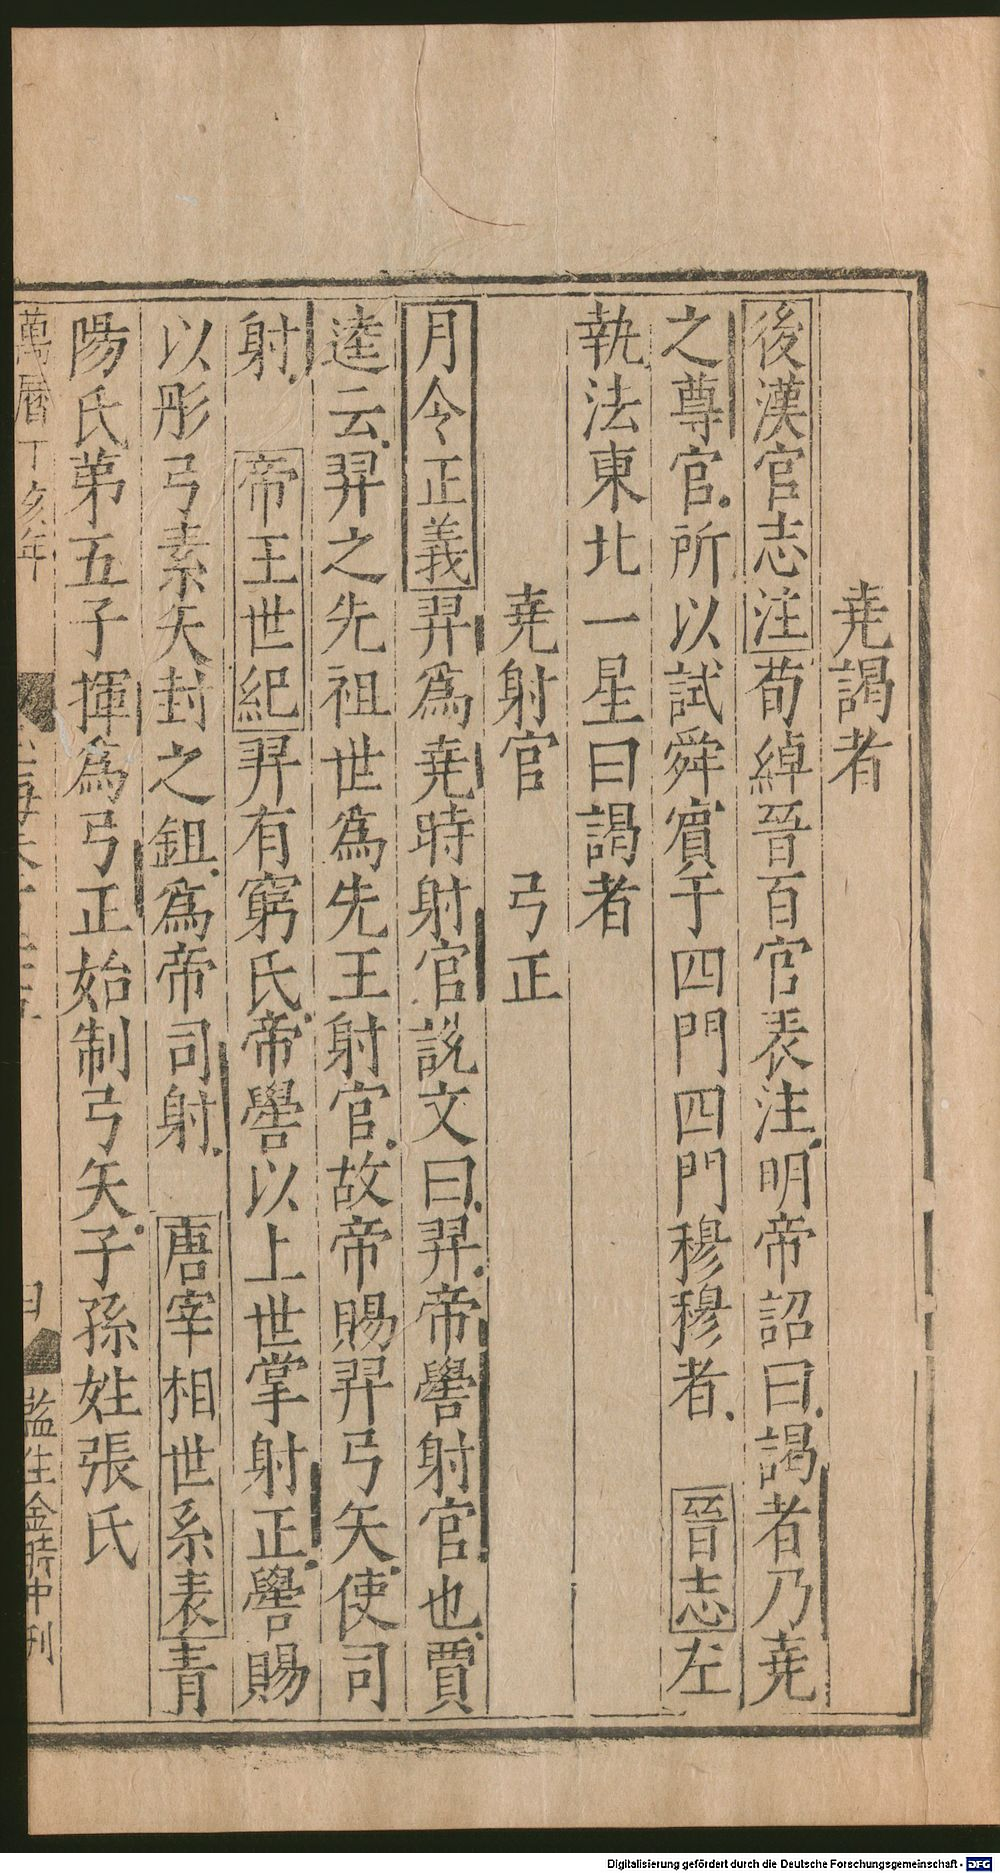 堯謁者
後漢官志注荀綽晉百官表注明帝詔曰謁者乃堯
之尊官所以試舜賓于四門四門穆穆者　晉志左
執法東北一星曰謁者
堯射官　弓正
月令正義羿爲堯時射官說文曰羿帝嚳射官也賈
逵云羿之先祖世爲先王射官故帝賜羿弓矢使司
射　帝王世紀羿有窮氏帝嚳以上世掌射正嚳賜
以彤弓素矢封之鉏爲帝司射　唐宰相世系表青
陽氏第五子揮爲弓正始制弓矢子孫姓張氏
萬曆丁亥年
監生
刊
Digitalisierung gefördert durch die Deutsche Forschungsgemeinschaft - DFG